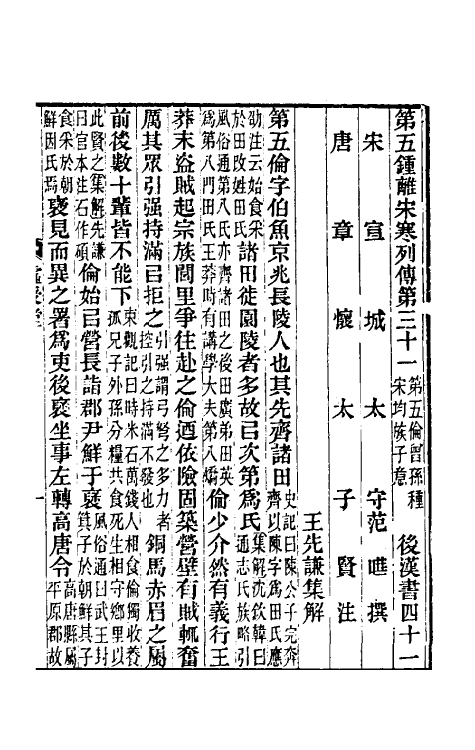 第五鍾離宋寒列傳第三十一 第五倫曾孫種 宋均族子意 後漢書四十一
宋宣城太守范曄撰
唐章懷太子賢注
王先謙集解
第五倫字伯魚京兆長陵人也其先齊諸田 史記曰陳公子完奔齊以陳字爲田氏應劭注云始食采於田改姓田氏 集解沈欽韓曰通志氏族略引風俗通第八氏亦齊諸田之後田廣弟田英爲第八門田氏王莽時有講學大夫第八矯
諸田徙園陵者多故㠯次第爲氏
倫少介然有義行王
莽末盜賊起宗族閭里爭往赴之倫迺依險固築營壁有賊輒奮
厲其眾引强持滿㠯拒之 引强謂弓弩之多力者控引之持滿不發也 銅馬赤眉之屬
前後數十輩皆不能下 東觀記曰時米石萬錢人相食倫獨收養孤兄子外孫分糧共食死生相守鄉里以此賢之 集解先謙曰官本注石作碩
倫始㠯營長詣郡尹鮮于襃 風俗通曰武王封箕子於朝鮮其子食采於朝鮮因氏焉
襃見而異之署爲吏後襃坐事左轉高唐令 高唐縣屬平原郡故
虛受堂
一